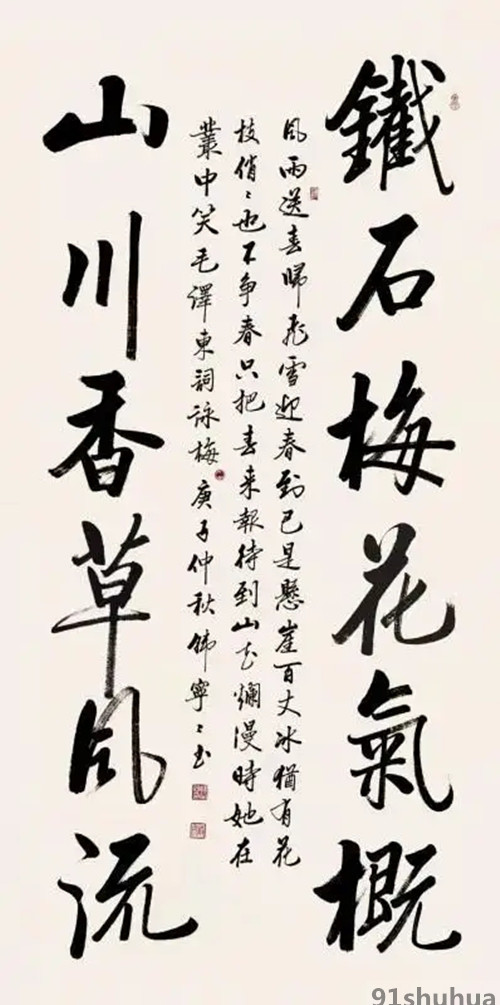 鐵石梅花氣概
風雨送春歸飛雪迎春到已是懸崖百丈冰猶有花
枝俏〻也不争春只把春來報待到山花爛漫時她在
叢中笑毛澤東詞詠梅庚子仲秋韩寧〻书
山川香草風流
91shuhua